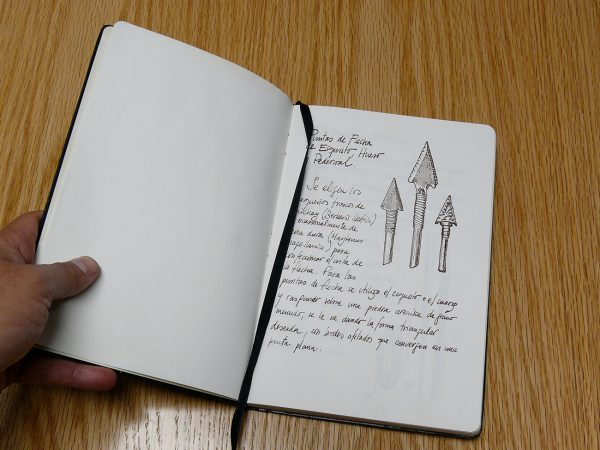 Puntas de Flecha
de Esquisto, Hueso
Pedernal.
Se eligen los
pequeños troncos de
(Berberis ilicifolia)
ocasionalmente de
dura (Maytenus
magellanica) para
confeccionar el asta de
la flecha. Para las
puntas de flecha se utiliza el esquisto o el cuarzo
y raspando sobre una piedra arenisca de grano
menudo, se le va dando la forma triangular
deseada, con bordes afilados que convergen en una
punta plana.